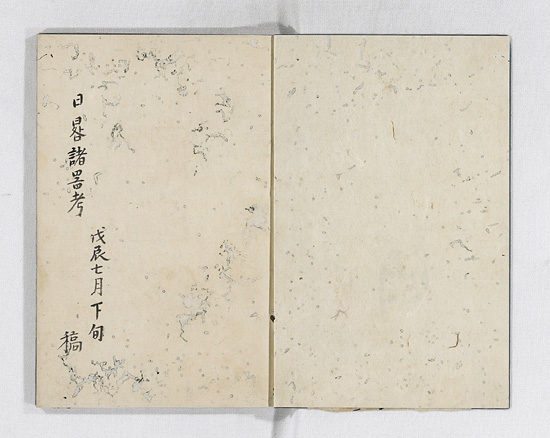 日晷諸器考
戊辰七月下旬
稿